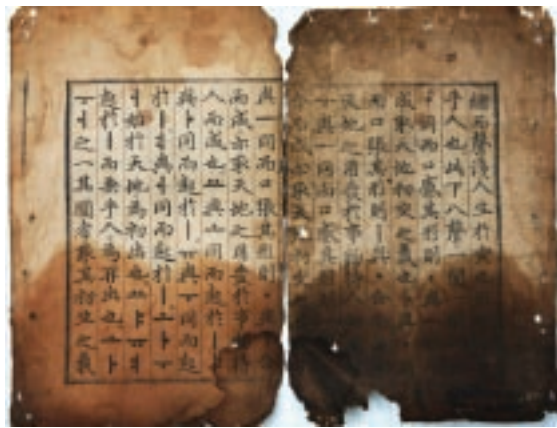 縮而聲淺人生於寅也
乎人也此下八聲一闔
ㆍ同而口蹙其形則ㆍ與ㅡ
成取天地初交之義也ㅏ與
而口張其形則ㅣ與ㆍ合
天地之用發於事物待人
ㅜ與ㅡ同而口蹙其形則
合而成亦取天地初
與ㅡ同而口張其形則ㆍ與
而成亦取天地之用發於事物待
人而成也ㅛ與ㅗ同而起於ㅣ
與ㅏ同而起於ㅣㅠ與ㅜ同而起
於ㅣㅕ與ㅓ同而起於ㅣㅗㅏㅜ
ㅓ始於天地爲初出也ㅛㅑㅠㅕ
起於ㅣ而兼乎人爲再出也ㅗㅏ
ㅜㅓ之一其圓者取其初生之義